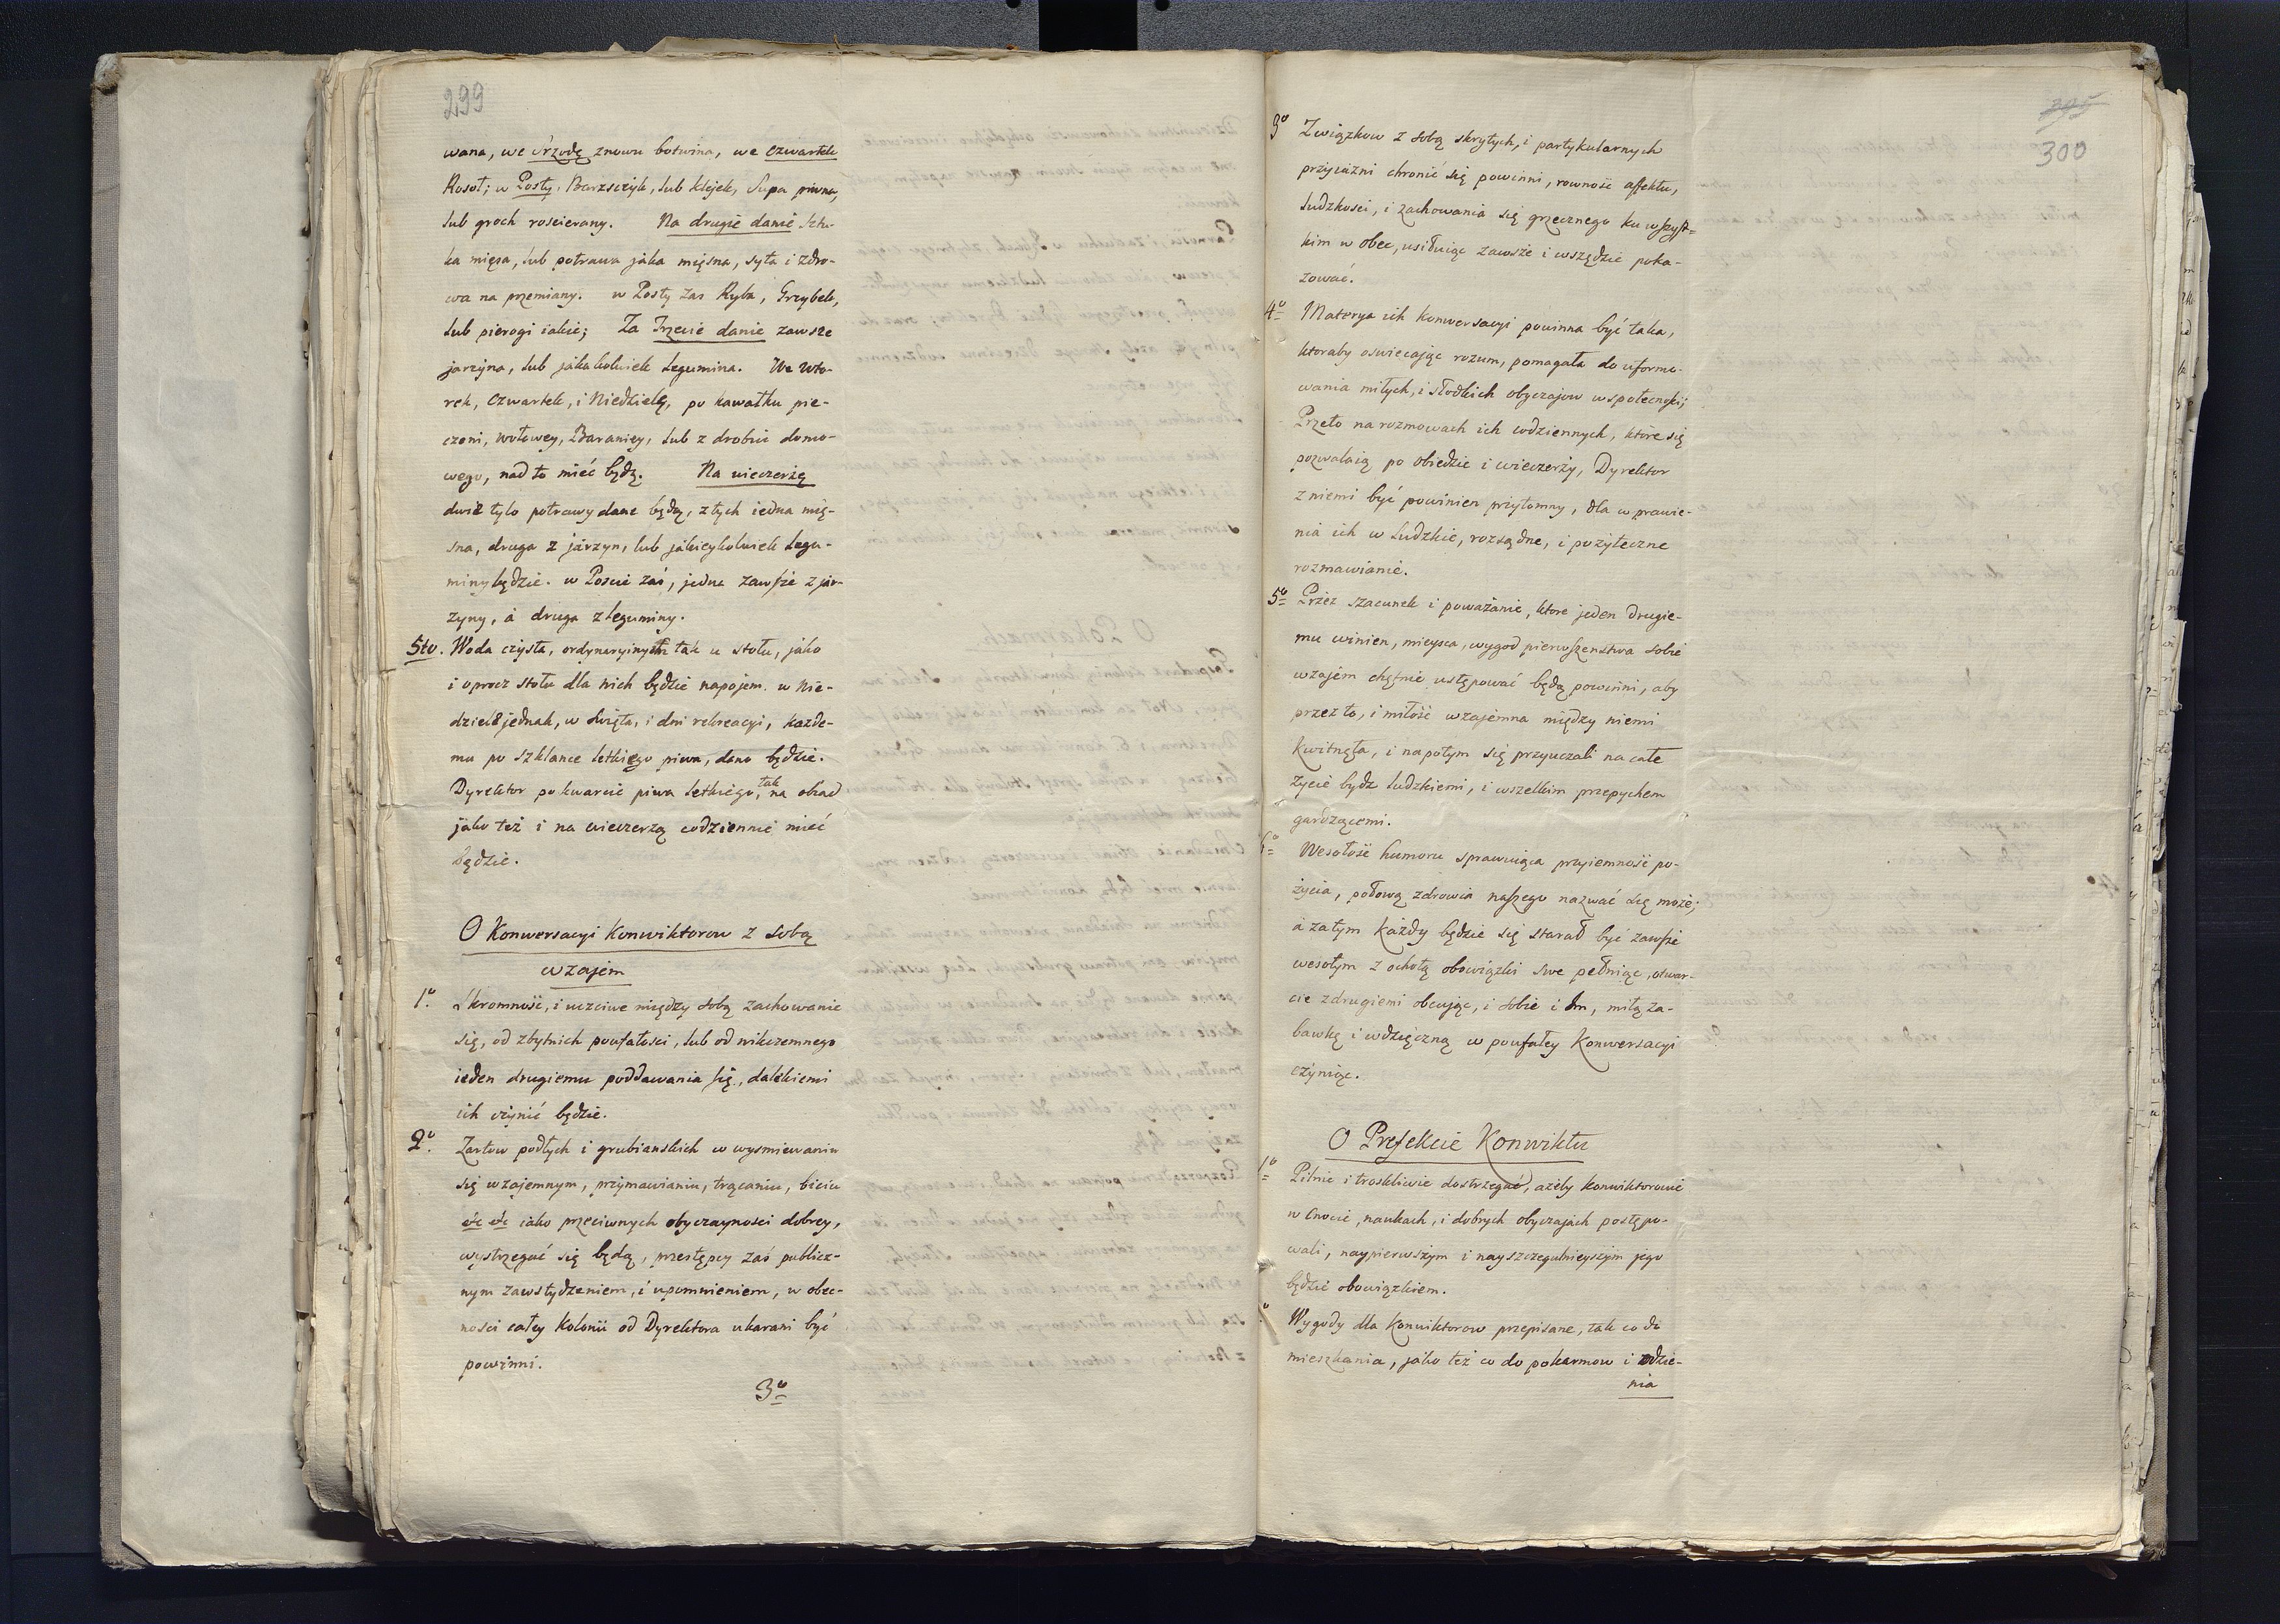 299
wana, we śrzodę znowu botwina, we czwartek
Rosoł; w Posty, Barzsczyk, lub klejek, Supa piwna,
lub groch roscierany. Na drugie danie sztu-
ka mięsa, lub potrawa jaka mięsna, syta i zdro-
wa na przemiany. w Posty zas Ryba, Grzybek,
lub pierogi iakie; Za Trzecie danie zawsze
jarzyna, lub jakakolwiek Legumina. We wto-
rek, czwartek, i Niedzielę, po kawałku pie-
czeni, wołowey, Baraniey, lub z drobiu domo-
wego, nad to mieć będą. Na wieczerżą
dwie tylo potrawy dane będą, z tych iedna mię-
sna, druga z jarzyn, lub jakieykolwiek Legu-
miny będzie. w Poscie zaś, jedna zawsze z jar-
zyny, a druga z leguminy.
5to. Woda czysta, ordynaryinym tak u stołu, jako
i oprocz stołu dla nich będzie napojem. w Nie-
dziele jednak, w święta, i dni rekreacyi, każde-
mu po szklance letkiego piwa, dano będzie.
Dyrektor po kwarcie piwa letkiego, tak na obiad
jako też i na wieczerzą codziennie mieć
będzie.
O Konwersacyi Konwiktorow z sobą
wzajem
1o. Skromność, i uczciwe między sobą zachowanie
się, od zbytnich poufałosci, lub od nikczemnego
ieden drugiemu poddawania się, dalekiemi
ich czynić będzie.
2o. Zartow podłych i grubianskich w wysmiewaniu
się wzajemnym, przymawianiu, trącaniu, biciu
etc etc iako przeciwnych obyczaynosci dobrey,
wystrzegać się będą, przestępcy zaś publicz-
nym zawstydzeniem, i upomnieniem, w obec-
nosci całey Kolonii od Dyrektora ukarani być
powinni.
3o
395
300
3o Związkow z sobą skrytych, i partykularnych
przyiaźni chronić się powinni, rowność affektu,
ludzkosci, i zachowania się grzecznego ku wszyst=
kim w obec, usiłuiąc zawsze i wszędzie poka-
zować.
4o Materya ich konwersacyi powinna być taka,
ktoraby oswiecając rozum, pomagała do uformo-
wania miłych, i słodkich obyczajow w społecznosci;
Przeto na rozmowach ich codziennych, ktore się
pozwalaią po obiedzie i wieczerży, Dyrektor
z niemi być powinien przytomny, dla wprawie-
nia ich w ludzkie, rozsądne, i pozyteczne
rozmawianie.
5o Przez szacunek i poważanie, ktore jeden drugie-
mu winien, mieysca, wygod pierwszenstwa sobie
wzajem chętnie ustępować będą powinni, aby
przez to, i miłość wzajemna między niemi
kwitnęła, i napotym się przyuczali na całe
życie bydz ludzkiemi, i wszelkim przepychem
gardzącemi.
6o Wesołość humoru sprawuiąca przyiemność po-
życia, połową zdrowia naszego nazwać się może;
a zatym każdy będzie się starał być zawsze
wesołym z ochotą obowiązki swe pełniąc, otwar-
cie z drugiemi obcując, i sobie i im, miłą za-
bawkę i wdzięczną w poufałey Konwersacyi
czyniąc.
O Prefekcie Konwiktu
1o Pilnie i troskliwie dostrzegać, ażeby konwiktorowie
w cnocie, naukach, i dobrych obyczajach postępo-
wali, naypierwszym i nayszczegulnieyszym jego
będzie obowiązkiem.
Wygody dla Konwiktorow przepisane, tak co do
mieszkania, jako też co do pokarmow i odzie-
nia